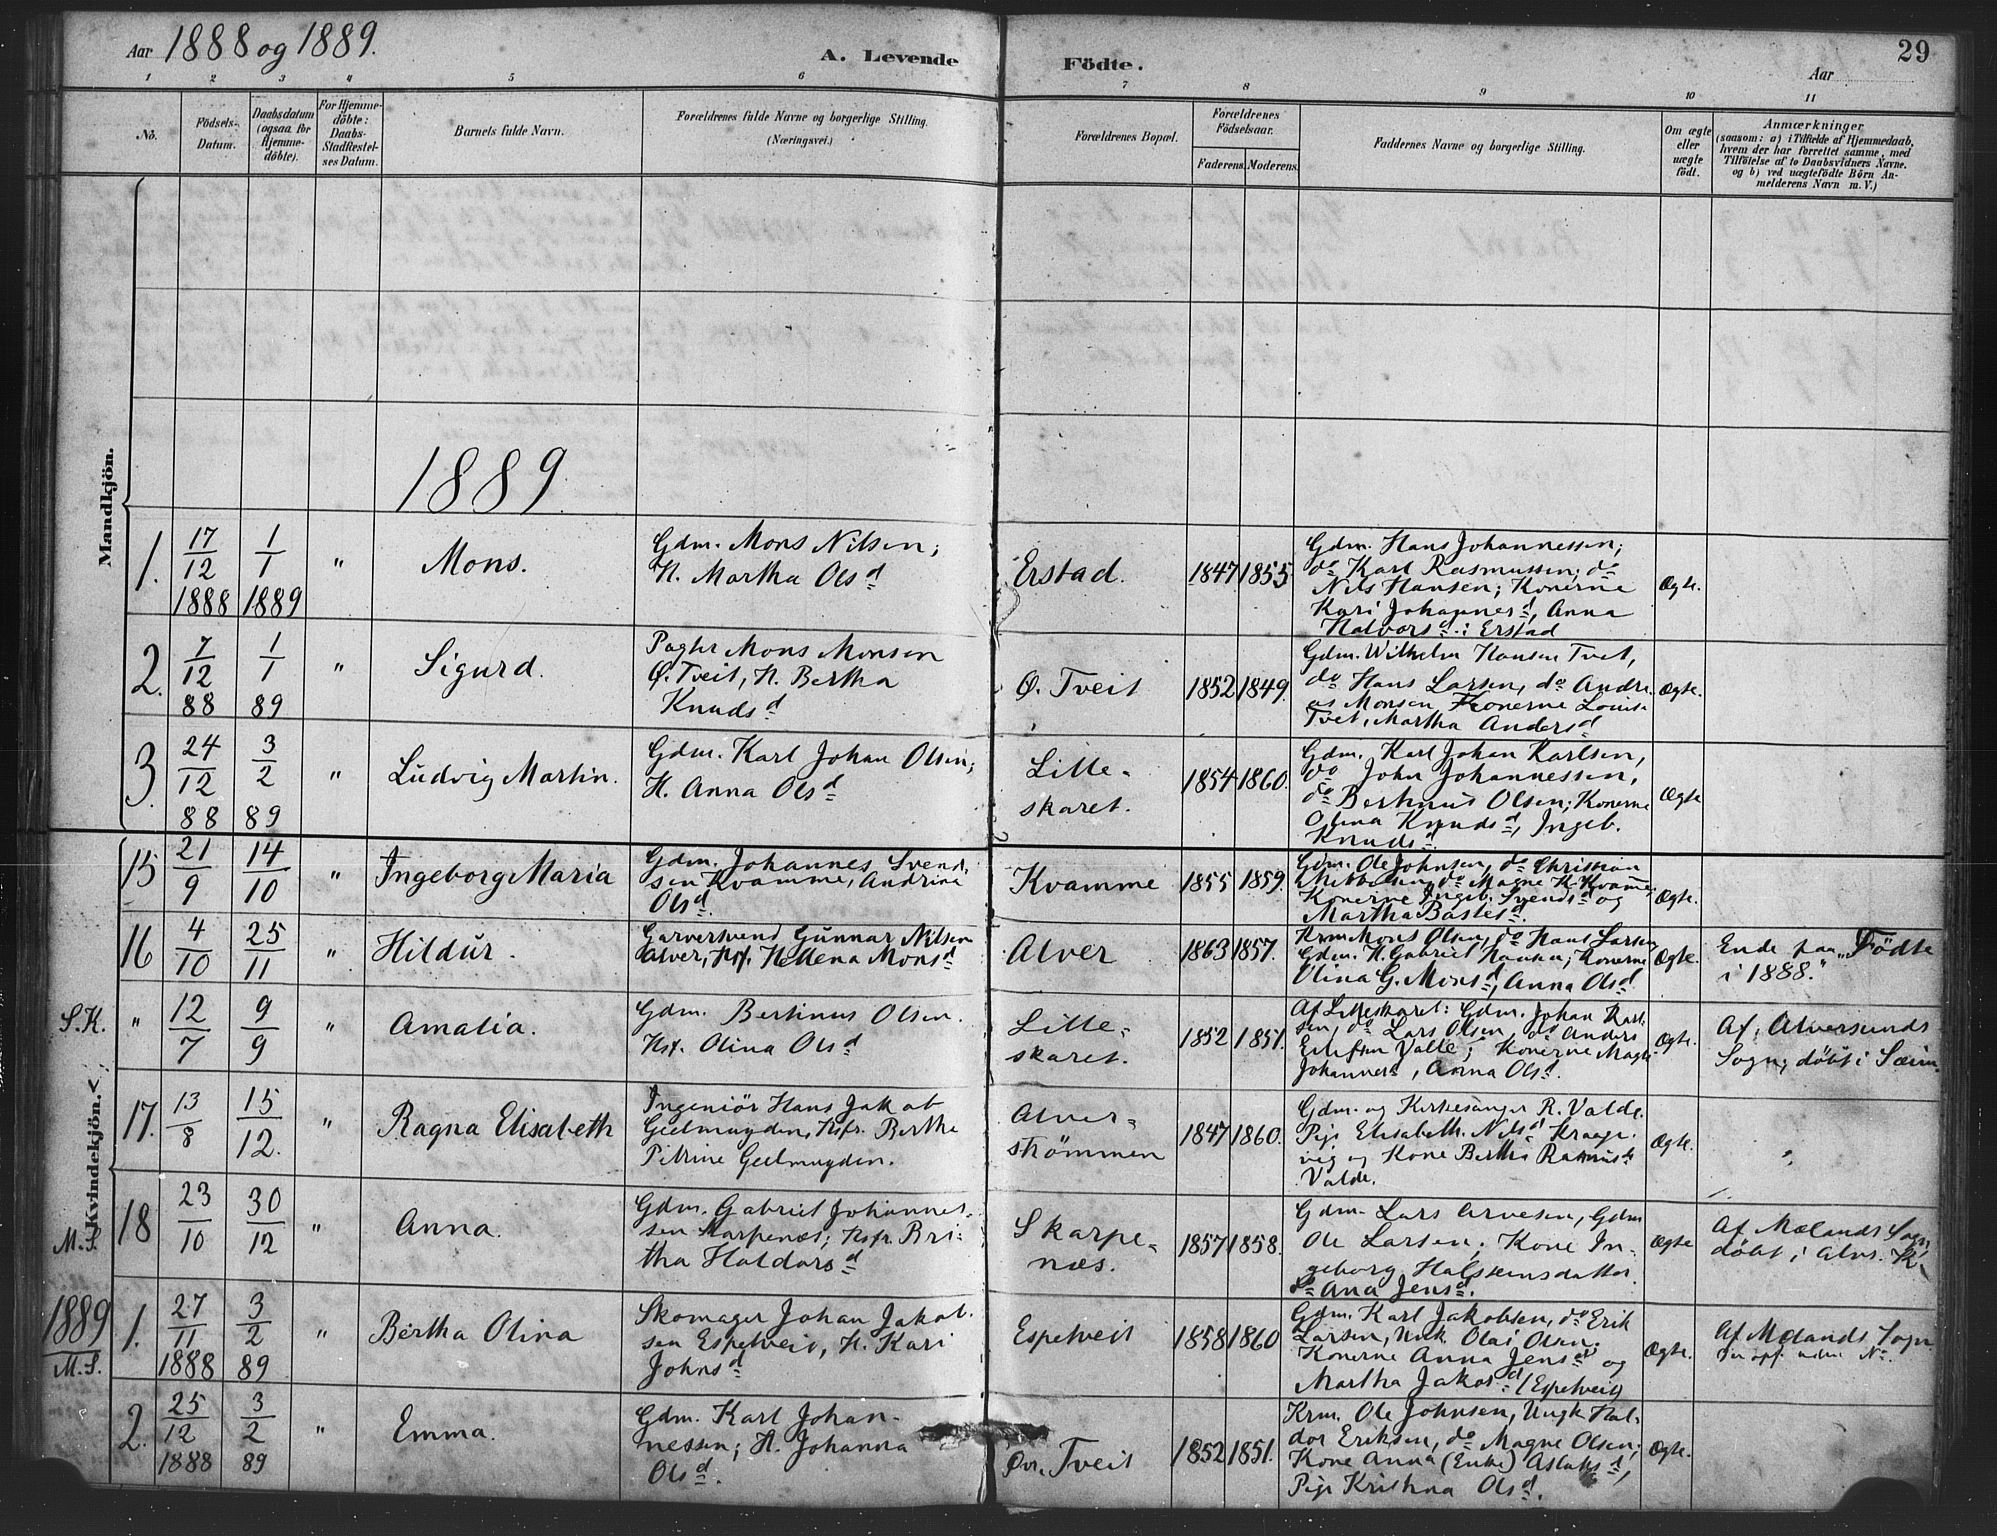 Aar 1888 og 1889.
A. Levende Födte.
Aar
29
1 2 3 4 5 6 7 8 9 10 11
No.
Födsels-Datum.
Daabsdatum (ogsaa for Hjemme-döbte).
For Hjemme-döbte: Daabs-Stadfæstelses Datum.
Barnets fulde Navn.
Forældrenes fulde Navne og borgerlige Stilling.
(Næringsvei.)
Forældrenes Bopæl.
Forældrenes Födselsaar.
Faderens. Moderens.
Faddernes Navne og borgerlige Stilling.
Om ægte eller uægte födt.
Anmærkninger
(saasom: a) i Tilfælde af Hjemmedaab,
hvem der har forrettet samme, med
Tilföielse af to Daabsvidners Navne,
og b) ved uægtefödte Börn An-
melderens Navn m. V.)
Mandkjön.
1889
1. 17/12 1888 1/1 1889 " Mons.
Gdm. Mons Nilsen;
H. Martha Olsd
Erstad. 1847 1855
Gdm. Hans Johannessen;
do Karl Rasmussen; do
Nils Hansen; Konerne
Kari Johannesd, Anna
Halvorsd. i Erstad
Ægte.
2. 7/12 88 1/1 89 " Sigurd.
Pagter Mons Monsen
Ø. Tveit, H. Bertha
Knudsd
Ø. Tveit 1852 1849.
Gdm. Wilhelm Hansen Tvet,
do Hans Larsen, do Andre
as Monsen Konerne Louise
Tvet, Martha Andersd
Ægte.
3. 24/12 88 3/2 89 " Ludvig Martin.
Gdm. Karl Johan Olsen;
H. Anna Olsd
Lille-
skaret. 1854 1860.
Gdm. Karl Johan Karlsen,
do John Johannessen,
do Bertinus Olsen; Konerne
Olina Knudsd, Ingeb.
Knudsd.
Ægte
Kvindekjön.
15 21/9 14/10 " Ingeborg Maria
Gdm. Johannes Svend-
sen Kvamme, Andrina
Olsd.
Kvamme 1855 1859.
Gdm. Ole Johnsen, do Christian
do Magne K. Kvamme,
Konerne Ingeb. Svendsd og
Martha Bastesd.
Ægte.
16 4/10 25/11 " Hildur.
Garversvend Gunnar Nilsen
Alver, Hf. Hellena Monsd
Alver 1863 1857.
Krm Mons Olsen, do Hans Larsen
Gdm. H. Gabriel Hansen; Konerne
Olina G. Monsd, Anna Olsd
Ægte.
Ende paa „Födte
i 1888."
S.K. " 12/7 9/9 " Amalia.
Gdm. Bertinus Olsen.
Hf. Olina Olsd
Lille-
skaret. 1852 1851.
Af Lilleskaret: Gdm. Johan Karl-
sen, do Lars Olsen, do Anders
Valle; Konerne Magte
Johannesd, Anna Olsd.
Ægte.
Af Alversunds
Sogn; döbt i Sæim.
17. 13/8 15/12. " Ragna Elisabeth
Ingeniör Hans Jakob
Geelmuyden, Hsfr. Berthe
Petrine Geelmuyden.
Alver-
strømmen 1847 1860.
Gdm. og Kirkesanger R. Valde.
Pige Elisabeth Nilsd Kraage-
vig og Kone Bertha Rasmusd
Valde.
Ægte.
M.S. 18 23/10 30/12 " Anna.
Gdm. Gabriel Johannes-
sen Skarpenæs; Hsfr. Bri-
tha Haldorsd
Skarpe-
næs. 1857 1858.
Gdm. Lars Arnesen, Gdm
Ole Larsen; Kone In-
geborg Halsteinsdatter
do Ana Jensd.
Ægte
Af Mælands Sogn,
döbt i Alvs. K.
1889 M.S. 1. 27/11 1888 3/2 89 " Bertha Olina
Skomager Johan Jakob-
sen Espetveit, H. Kari
Johnsd
Espetveit 1858 1860
Gdm. Karl Jakobsen, do Erik
Larsen, Unk. Olai Olsen.
Konerne Anna Jensd og
Martha Jakobd (Espetveit)
Ægte.
Af Mælands Sogn
No.
2. 25/12 1888 3/2 89 " Emma.
Gdm. Karl Johan-
nessen; H. Johanna
Olsd.
Øvr. Tveit 1852 1851.
Krm. Ole Johnsen, Ungk Hal-
dor Eriksen, do Magne Olsen;
Kone Anna (Enke) Aslaksd,
Pige Kristina Olsd.
Ægte.